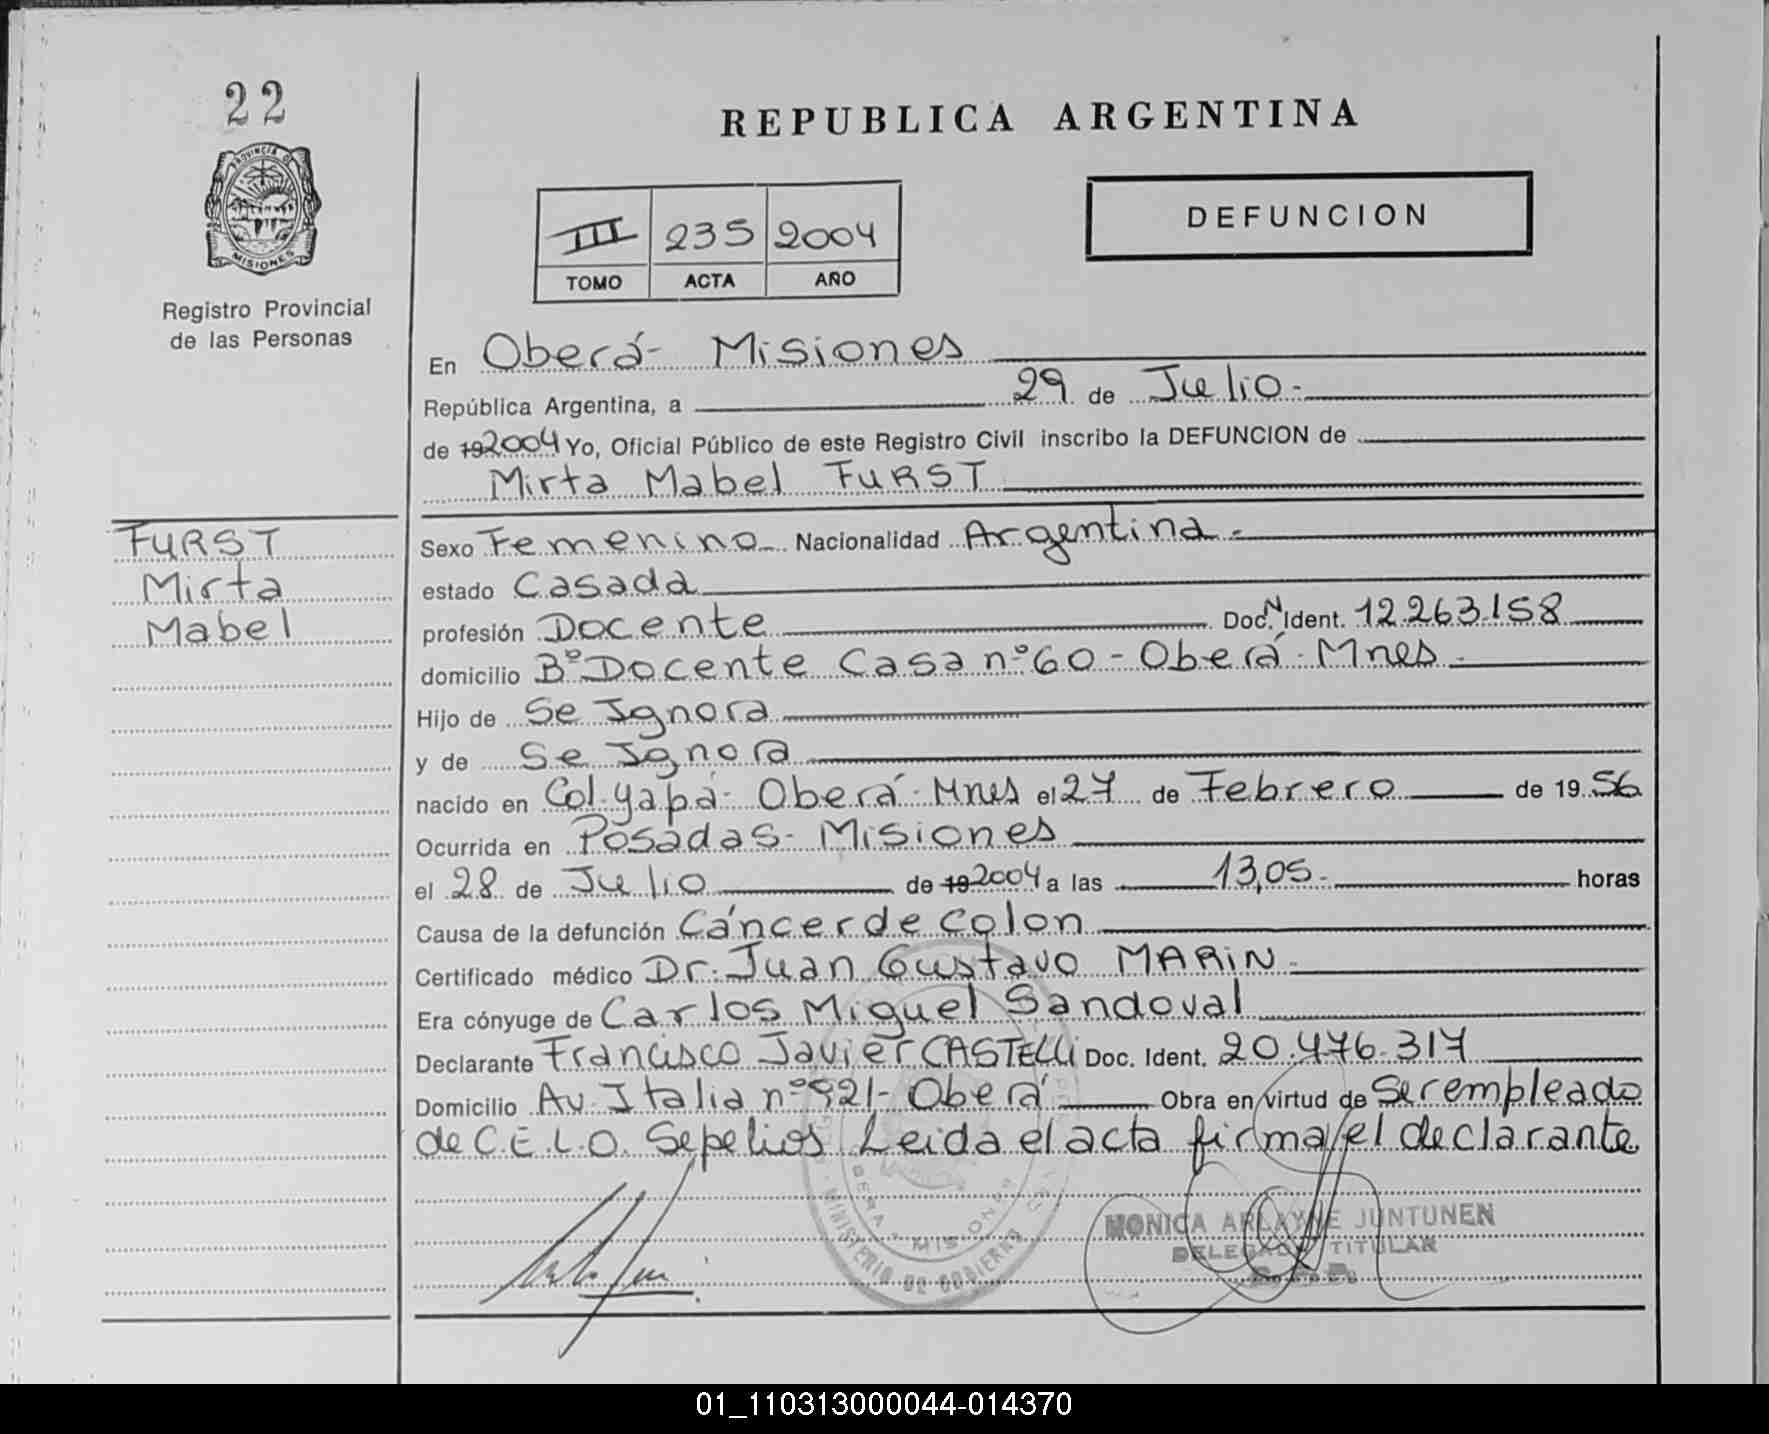 22
PROVINCIA DE
MISIONES
Registro Provincial
de las Personas
REPUBLICA ARGENTINA
DEFUNCION
III 235 2004
TOMO ACTA AÑO
En Oberá - Misiones
República Argentina, a 29 de Julio.-
de 192004 Yo, Oficial Público de este Registro Civil inscribo la DEFUNCION de
Mirta Mabel FURST
FURST
Mirta
Mabel
Sexo Femenino Nacionalidad Argentina.-
estado Casada
profesión Docente Doc. N Ident. 12.263.158
domicilio Bº Docente Casa nº 60 - Oberá - Mnes.-
Hijo de Se Ignora
y de Se Ignora
nacido en Col. Yapa - Oberá - Mnes el 27 de Febrero de 19 56
Ocurrida en Posadas - Misiones
el 28 de Julio de 192004 a las 13,05.- horas
Causa de la defunción Cáncer de colon
Certificado médico Dr. Juan Gustavo MARiN.-
Era cónyuge de Carlos Miguel Sandoval
Declarante Francisco Javier CASTELLi Doc. Ident. 20.476.317
Domicilio Av. Italia nº 921 - Oberá Obra en virtud de Ser empleado
de C.E.L.O. Sepelios Leida el acta firma el declarante
MINISTERIO DE GOBIERNO
MISIONES
MONICA ARLAYNE JUNTUNEN
DELEGADA TITULAR
01_110313000044-014370